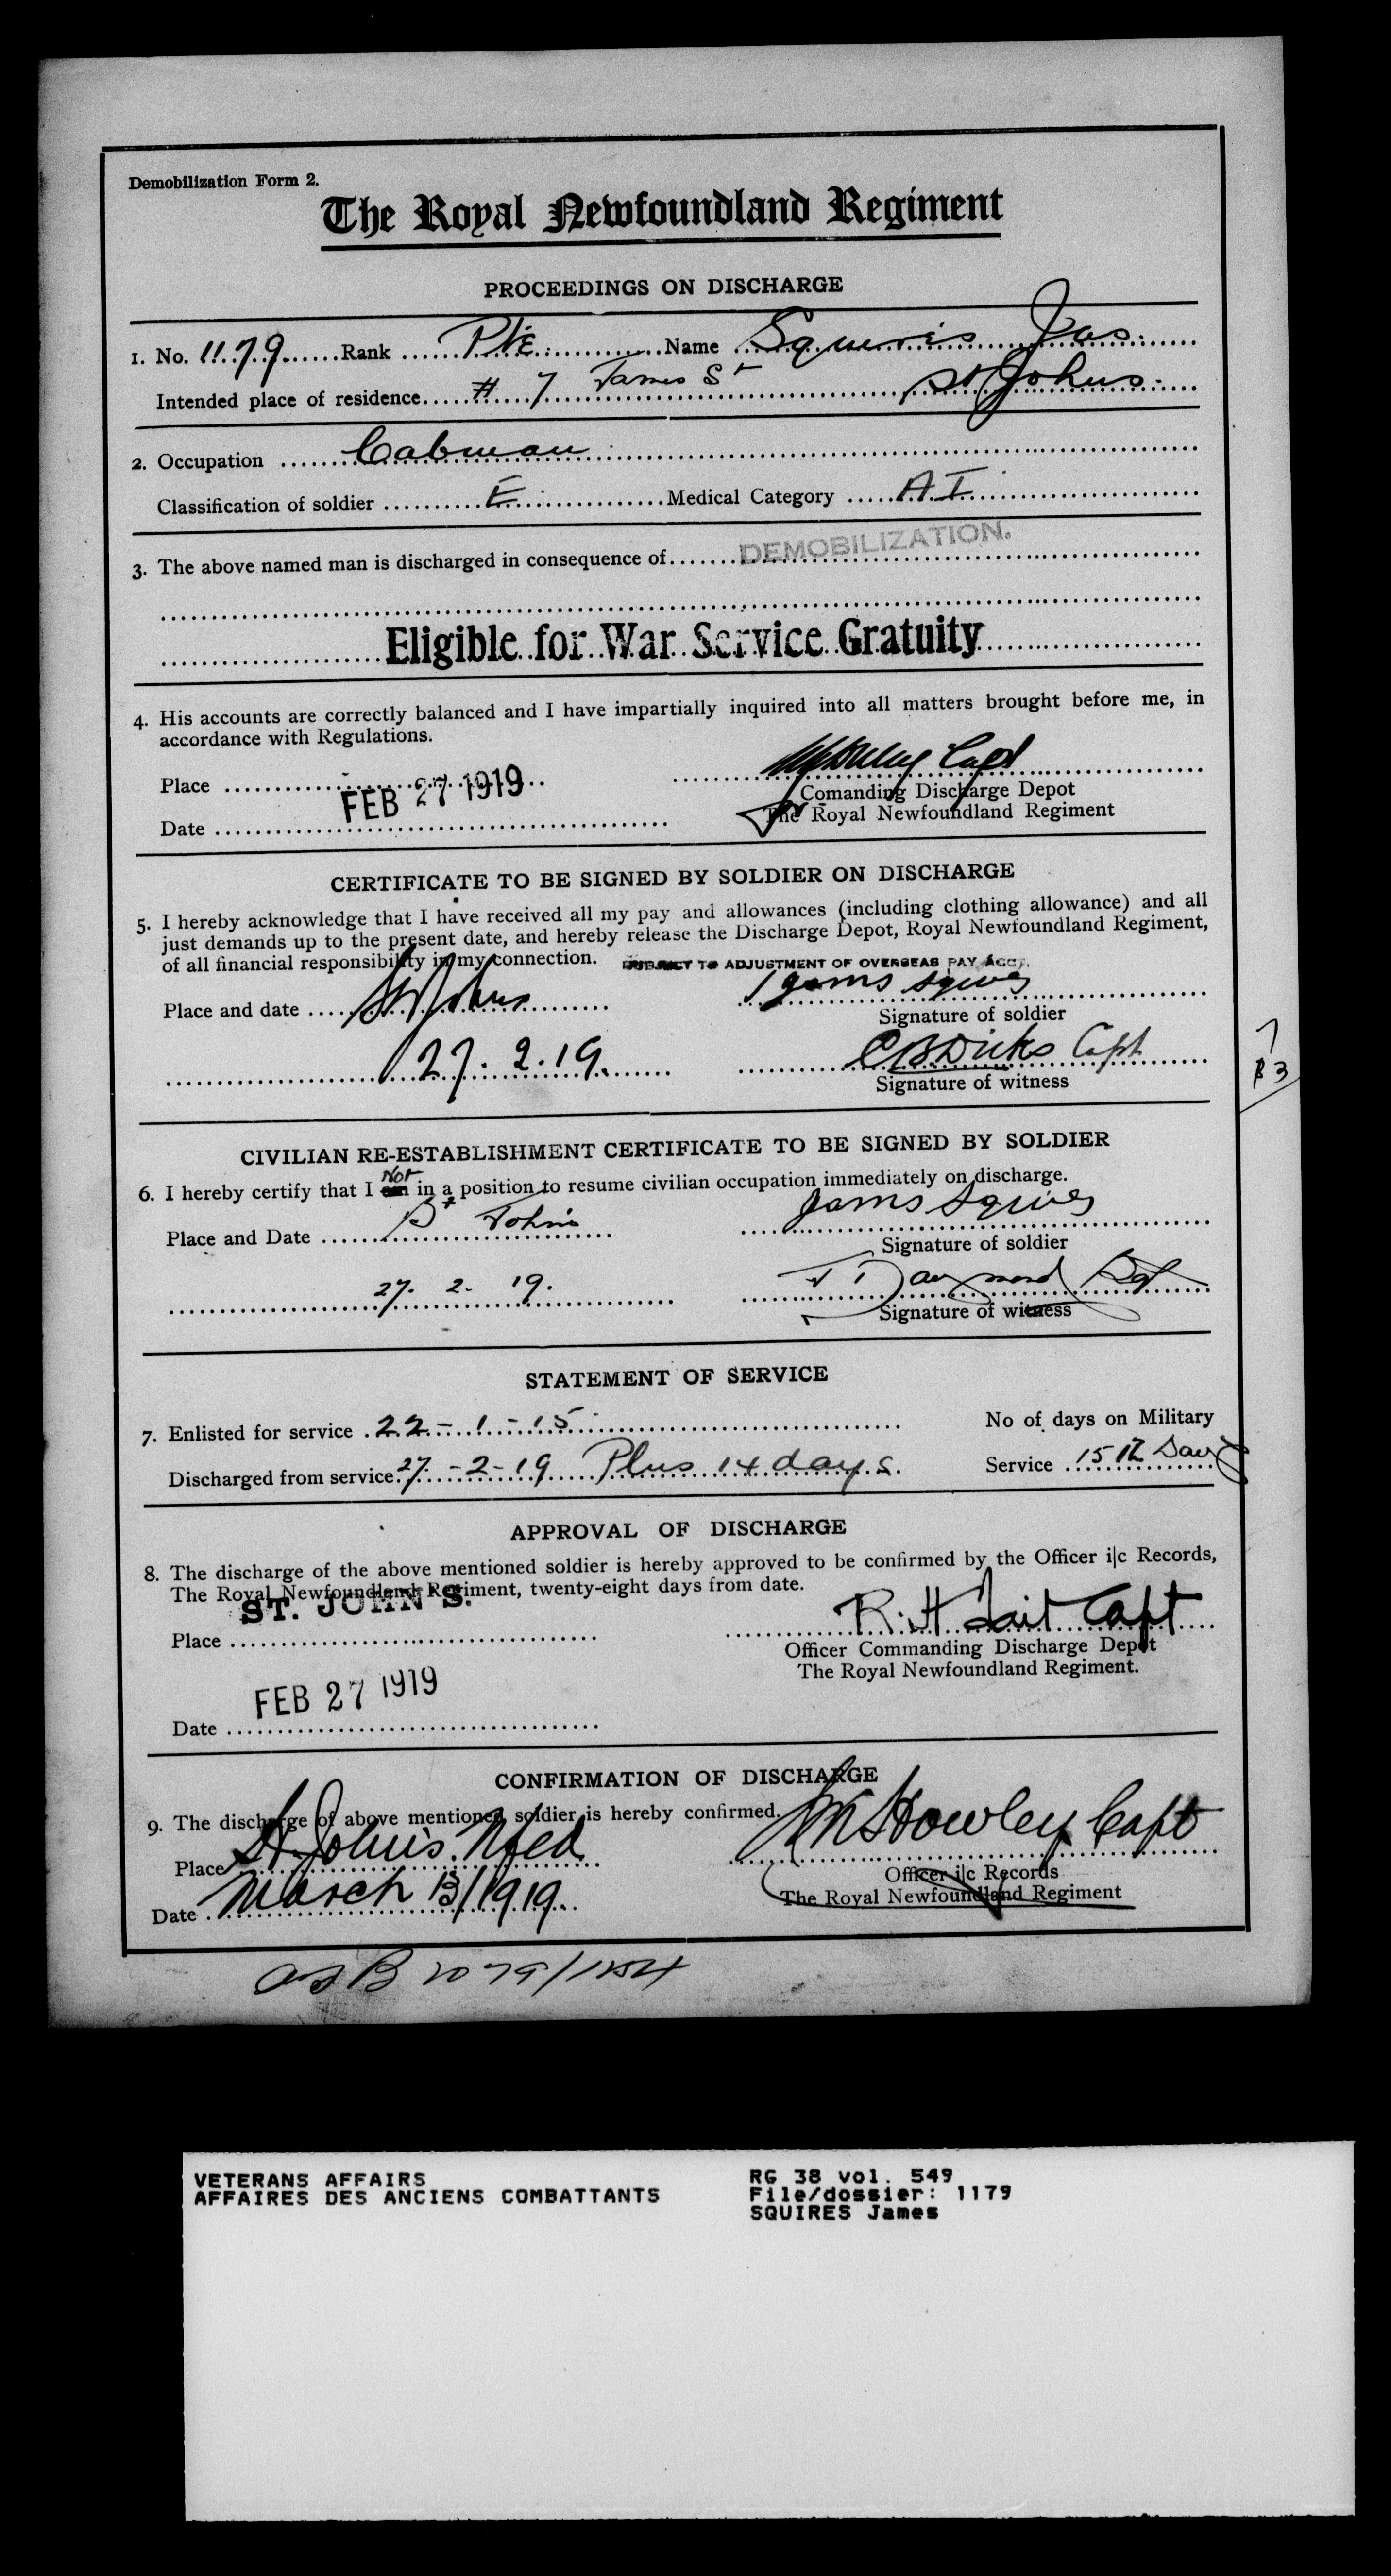 Demobilization Form 2.
The Royal Newfoundland Regiment
PROCEEDINGS ON DISCHARGE
1. No. 1179 Rank Pte. Name Squires Jas.
Intended place of residence # 7 James St St Johns.
2. Occupation Cabman
Classification of soldier E Medical Category A I
3. The above named man is discharged in consequence of DEMOBILIZATION.
Eligible for War Service Gratuity
4. His accounts are correctly balanced and I have impartially inquired into all matters brought before me, in
accordance with Regulations.
Place Capt
FEB 27 1919
Comanding Discharge Depot
Date
for The Royal Newfoundland Regiment
CERTIFICATE TO BE SIGNED BY SOLDIER ON DISCHARGE
5. I hereby acknowledge that I have received all my pay and allowances (including clothing allowance) and all
just demands up to the present date, and hereby release the Discharge Depot, Royal Newfoundland Regiment,
of all financial responsibility in my connection. SUBJECT TO ADJUSTMENT OF OVERSEAS PAY ACCT.
Place and date St Johns Jams Sqires
Signature of soldier
27. 2. 19. C B Dicks Capt
Signature of witness
CIVILIAN RE-ESTABLISHMENT CERTIFICATE TO BE SIGNED BY SOLDIER
6. I hereby certify that I am Not in a position to resume civilian occupation immediately on discharge.
Place and Date St Johns Jams Sqires
Signature of soldier
27. 2. 19.
Signature of witness
STATEMENT OF SERVICE
7. Enlisted for service 22 - 1 - 15 No of days on Military
Discharged from service 27 - 2 - 19 Plus 14 days. Service 1512 Days
APPROVAL OF DISCHARGE
8. The discharge of the above mentioned soldier is hereby approved to be confirmed by the Officer i|c Records,
The Royal Newfoundland Regiment, twenty-eight days from date.
ST. JOHN'S.
Place R. H. Tait Capt
Officer Commanding Discharge Depot
The Royal Newfoundland Regiment.
FEB 27 1919
Date
CONFIRMATION OF DISCHARGE
9. The discharge of above mentioned soldier is hereby confirmed.
Place St John's. Nfld Howley Capt
Officer i|c Records
The Royal Newfoundland Regiment
Date March 13/1919.
VETERANS AFFAIRS RG 38 vol. 549
AFFAIRES DES ANCIENS COMBATTANTS File/dossier: 1179
SQUIRES James